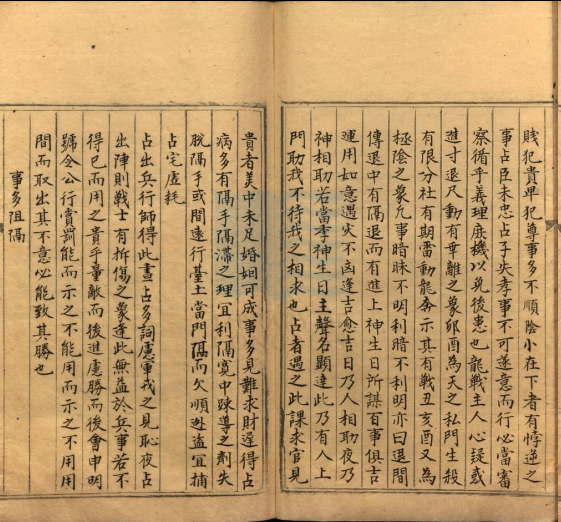 賤犯貴卑犯尊事多不順陰小在下者有悖逆之
事占臣未忠占子失孝事不可遂意而行必當審
察循乎義理庶機以免後患也龍戰主人心疑惑
進寸退尺動有乖離之象卯酉為天之私門生殺
有限分社有期雷動龍奔示其有戰丑亥酉又為
極陰之象凡事暗昧不明利暗不利明亦曰退間
傳退中有隔退而有進上神生日所謀百事俱吉
運用如意遇灾不凶逢吉愈吉日乃人相助夜乃
神相助若當季神生日主聲名顯達此乃有人上
門助我不待我之相求也占者遇之此課求官見
貴者美中未足婚姻可成事多見難求財遲得占
病多有隔手隔滯之理宜利隔寬中踈導之劑失
脫隔手或間遠行臺土當門隔而欠順迯盜宜捕
占宅虛耗
占出兵行師得此晝占多詞慮軍戎之見恥夜占
出陣則戰士有折傷之象逢此無益於兵事若不
得已而用之貴乎量敵而後進慮勝而後會申明
號令公行賞罰能而示之不能用而示之不用用
間而取出其不意必能致其勝也
事多阻隔